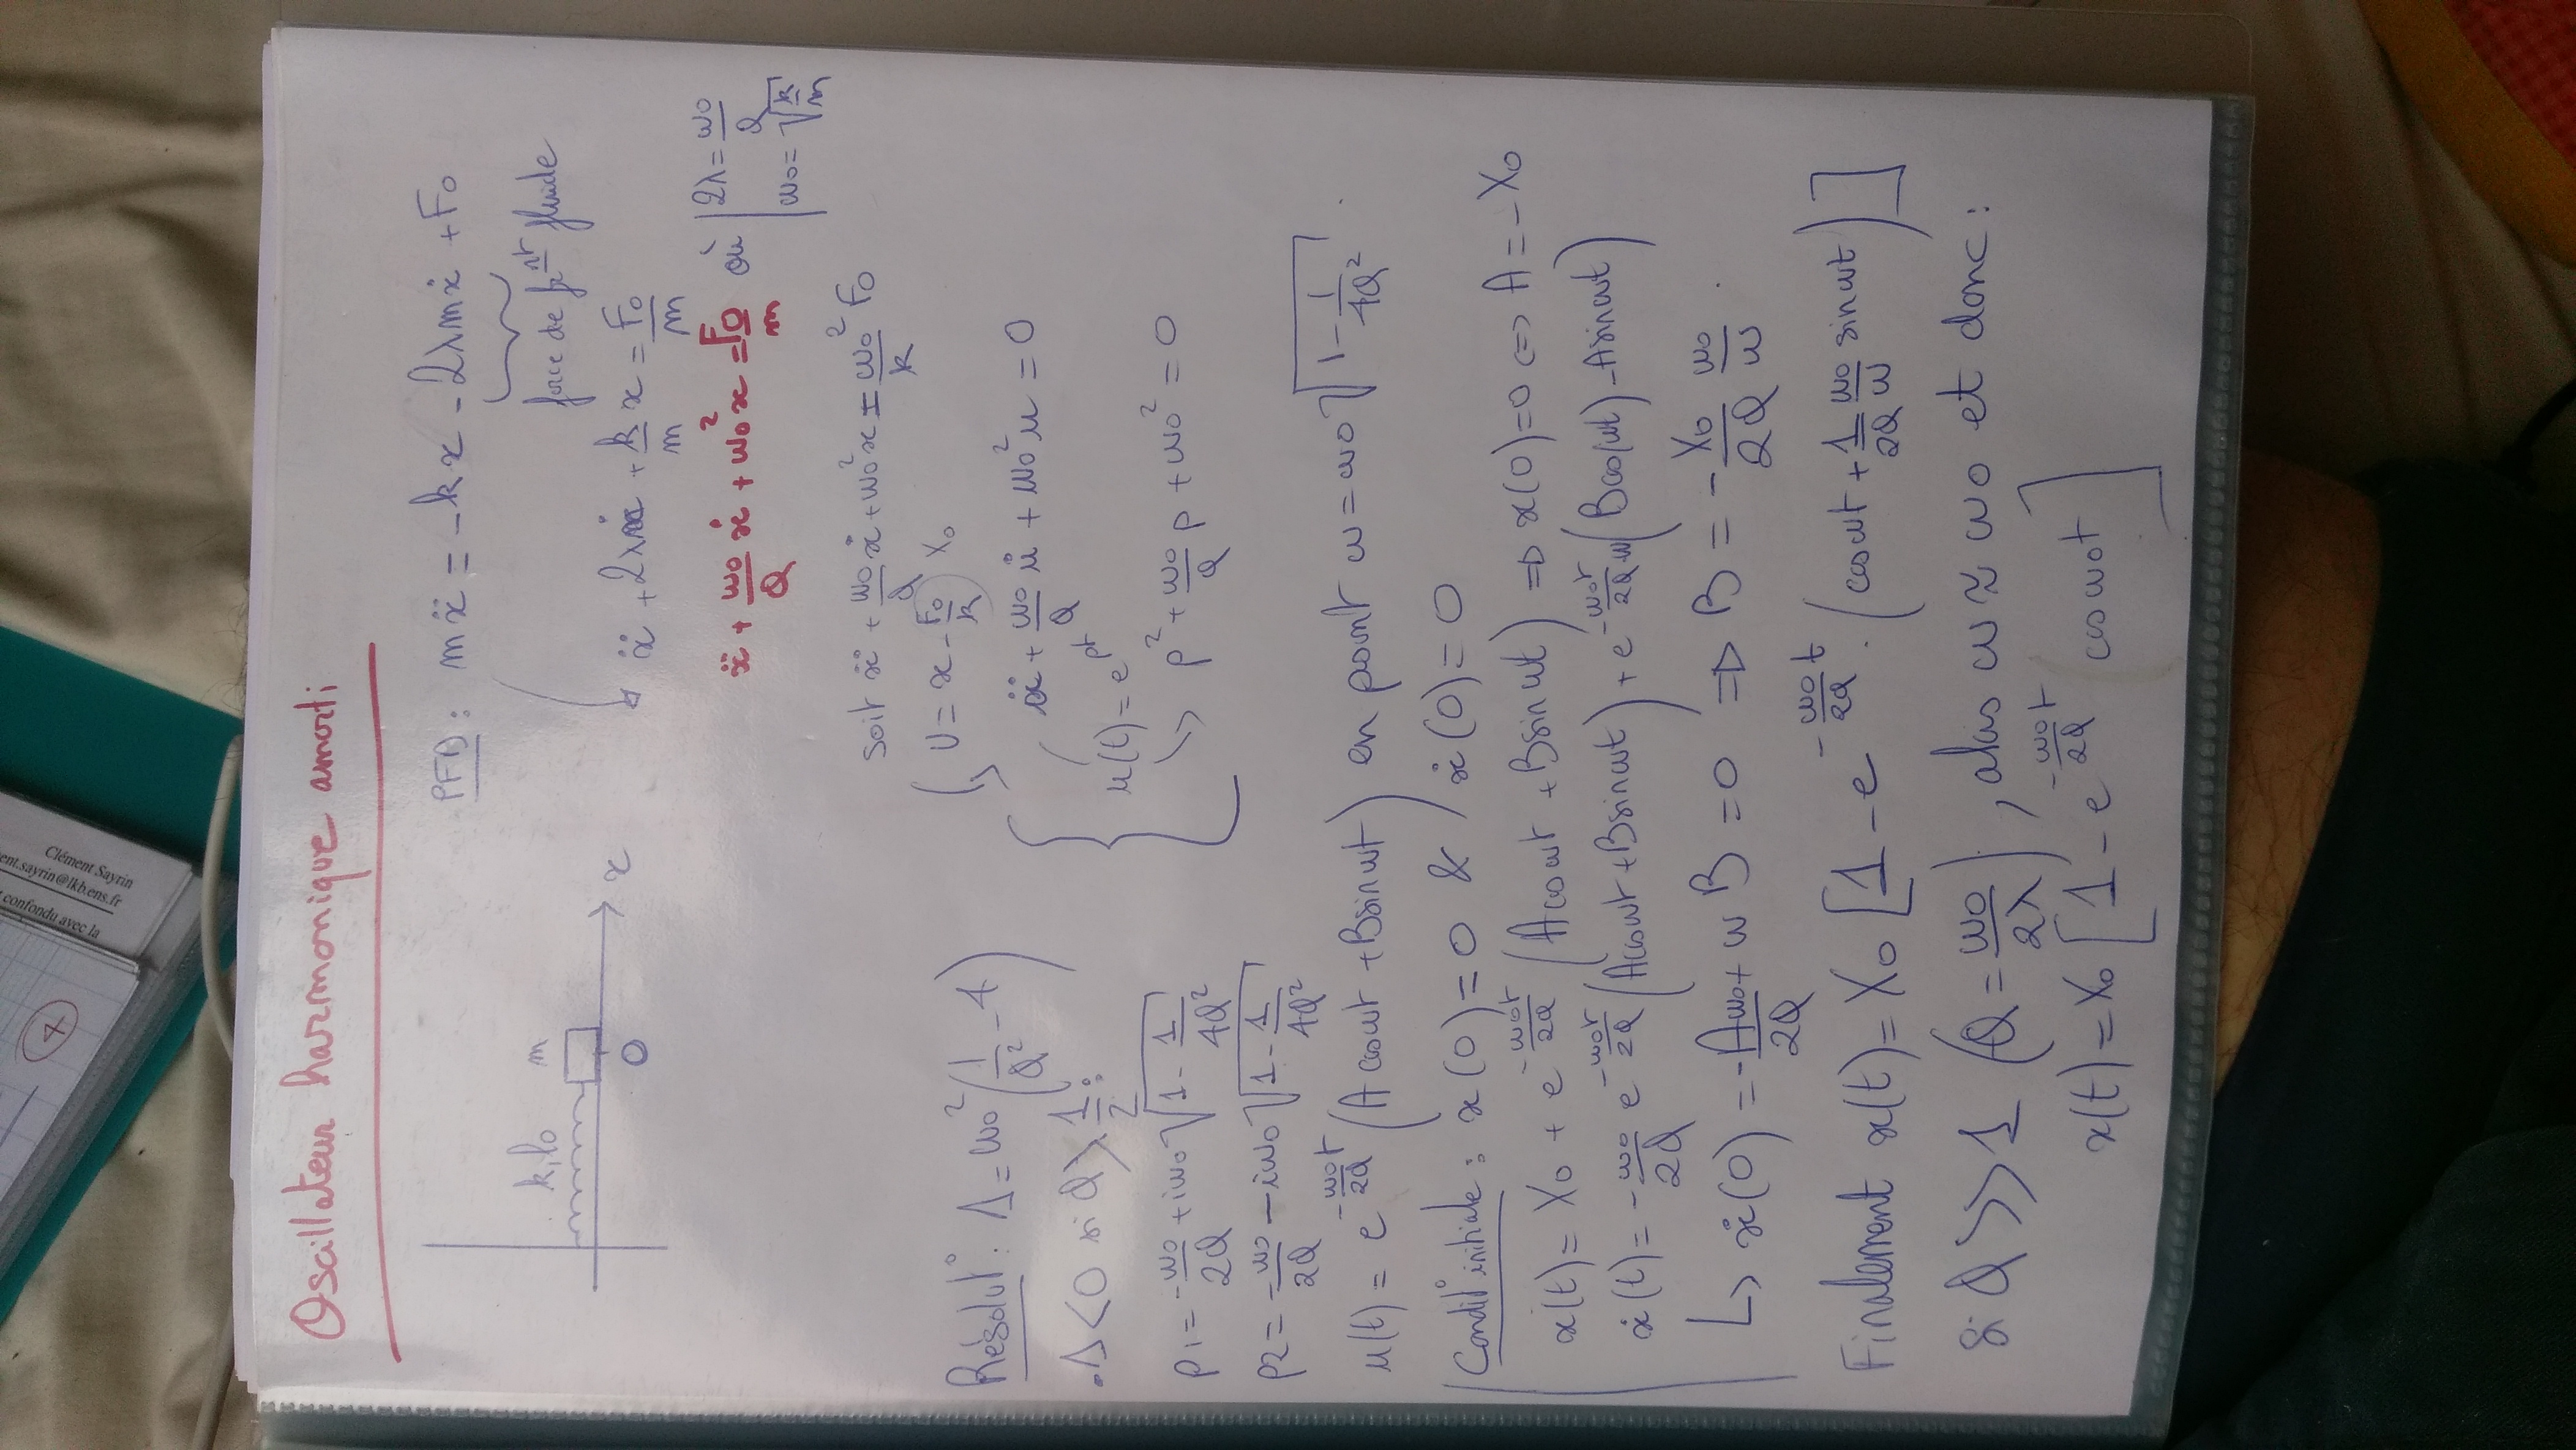 Oscillateur harmonique amorti:
k, l0 m
O x
PFD: mẍ = -kx - 2λmẋ + F0
force de frnt fluide
↳ ẍ + 2λẋ + k/m x = F0/m
ẍ + ω0/Q ẋ + ω0² x = F0/m où | 2λ = ω0/Q
| ω0 = √(k/m)
soit ẍ + ω0/Q ẋ + ω0² x = ω0²/k F0
↳ U = x - F0/k X0
ü + ω0/Q u̇ + ω0² u = 0
u(t) = e^pt
↳ p² + ω0/Q p + ω0² = 0
Résolut°: Δ = ω0² (1/Q² - 4)
. Δ < 0 si Q > 1/2 :
p1 = -ω0/2Q + iω0 √(1 - 1/4Q²)
p2 = -ω0/2Q - iω0 √(1 - 1/4Q²)
u(t) = e^(-ω0t/2Q) (A cosωt + B sinωt) en posant ω = ω0 √(1 - 1/4Q²) .
Condit° initiale: x(0) = 0 & ẋ(0) = 0
x(t) = X0 + e^(-ω0t/2Q) (A cosωt + B sinωt) ⇒ x(0) = 0 ⇔ A = -X0
ẋ(t) = -ω0/2Q e^(-ω0t/2Q) (A cosωt + B sinωt) + e^(-ω0t/2Q) ω (B cos(ωt) - A sinωt)
↳ ẋ(0) = -Aω0/2Q + ωB = 0 ⇒ B = -X0/2Q ω0/ω .
Finalement x(t) = X0 [1 - e^(-ω0t/2Q) . (cosωt + 1/2Q ω0/ω sinωt)]
Si Q >> 1 (Q = ω0/2λ), alors ω ≈ ω0 et donc:
x(t) = X0 [1 - e^(-ω0t/2Q) (cosω0t]
Clément Sayrin
ent.sayrin@lkb.ens.fr
confondu avec la